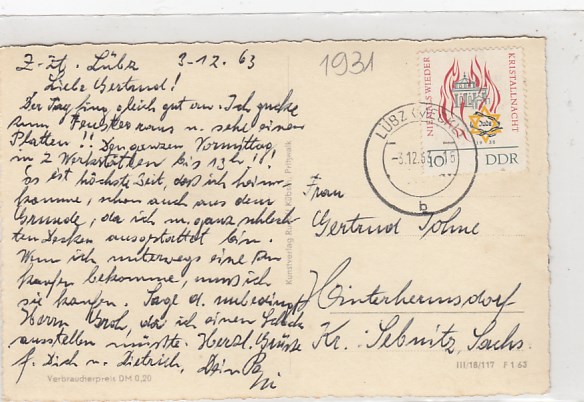 Z-Zt. Lübz 3-12.63
Liebe Gertrud!
Der Tag fing gleich gut an. Ich gucke
zum Fenster raus u. sehe einen
Platten!! Den ganzen Vormittag
in 2 Werkstätten bis 13h!!!
Es ist höchste Zeit, daß ich heim
komme, schon auch aus dem
Grunde, da ich m. ganz schlech-
ten Decken ausgestattet bin.
Wenn ich unterwegs eine zu
kaufen bekomme, muß ich
sie kaufen. Sage d. unbedingt
Herrn Groh, da ich einen Scheck
ausstellen müßte. Herzl. Grüße
f. Dich u. Dietrich, Dein
1931
NIEMALS WIEDER
KRISTALLNACHT
Jude
1938
10
DDR
LÜBZ
-3.12.63
b
Frau
Gertrud Sohne
Hinterhermsdorf
Kr. Sebnitz, Sachs.
Kunstverlag Rudolf Kübart, Pritzwalk
Verbraucherpreis DM 0,20
III/18/117 F 1 63